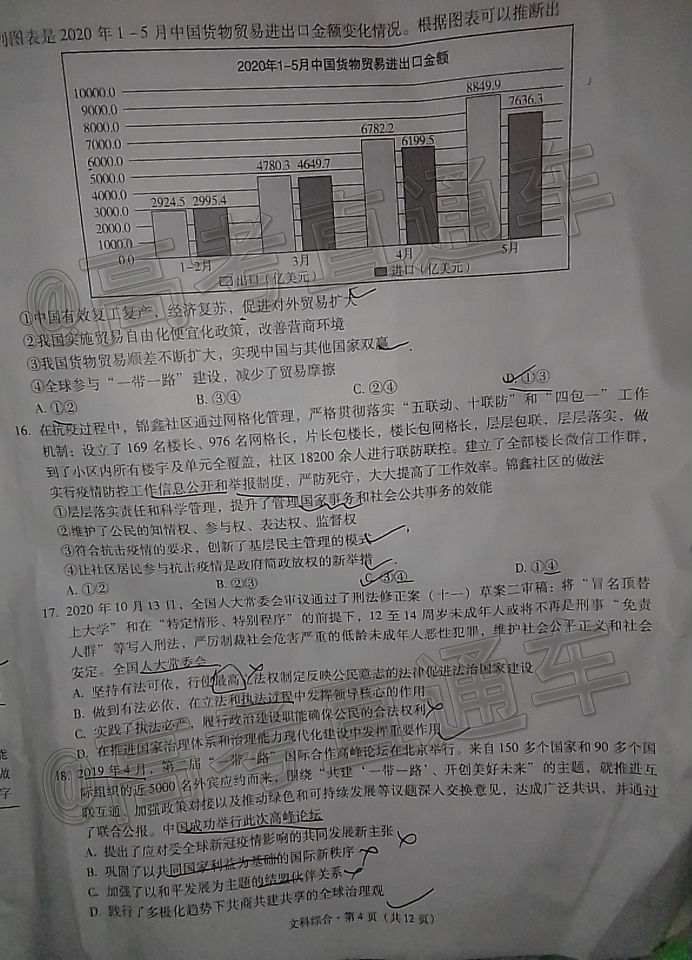 列图表是2020年1-5月中国货物贸易进出口金额变化情况。根据图表可以推断出
2020年1-5月中国货物贸易进出口金额
10000.0
9000.0
8000.0
7000.0
6000.0
5000.0
4000.0
3000.0
2000.0
1000.0
0.0
2924.5 2995.4
4780.3 4649.7
6782.2
6199.5
8849.9
7636.3
1-2月 3月 4月 5月
出口（亿美元） 进口（亿美元）
①中国有效复工复产，经济复苏、促进对外贸易扩大
②我国实施贸易自由化便宜化政策，改善营商环境
③我国货物贸易顺差不断扩大，实现中国与其他国家双赢
④全球参与“一带一路”建设，减少了贸易摩擦
A. ①② B. ③④ C. ②④ D. ①③
16. 在抗疫过程中，锦鑫社区通过网格化管理，严格贯彻落实“五联动、十联防”和“四包一”工作
机制：设立了169名楼长、976名网格长，片长包楼长，楼长包网格长，层层包联，层层落实，做
到了小区内所有楼宇及单元全覆盖，社区18200余人进行联防联控。建立了全部楼长微信工作群，
实行疫情防控工作信息公开和举报制度，严防死守，大大提高了工作效率。锦鑫社区的做法
①层层落实责任和科学管理，提升了管理国家事务和社会公共事务的效能
②维护了公民的知情权、参与权、表达权、监督权
③符合抗击疫情的要求，创新了基层民主管理的模式
④让社区居民参与抗击疫情是政府简政放权的新举措
A. ①② B. ②③ C. ③④ D. ①④
17. 2020年10月13日，全国人大常委会审议通过了刑法修正案（十一）草案二审稿：将“冒名顶替
上大学”和在“特定情形、特别程序”的前提下，12至14周岁未成年人或将不再是刑事“免责
人群”等写入刑法，严厉制裁社会危害严重的低龄未成年人恶性犯罪，维护社会公平正义和社会
安定。全国人大常委会
A. 坚持有法可依，行使最高立法权制定反映公民意志的法律促进法治国家建设
B. 做到有法必依，在立法和执法过程中发挥领导核心的作用
C. 实践了执法必严，履行政治建设职能确保公民的合法权利
D. 在推进国家治理体系和治理能力现代化建设中发挥重要作用
18. 2019年4月，第二届“一带一路”国际合作高峰论坛在北京举行。来自150多个国家和90多个国
际组织的近5000名外宾应约而来，围绕“共建‘一带一路’、开创美好未来”的主题，就推进互
联互通、加强政策对接以及推动绿色和可持续发展等议题深入交换意见，达成广泛共识，并通过
了联合公报。中国成功举行此次高峰论坛
A. 提出了应对受全球新冠疫情影响的共同发展新主张
B. 巩固了以共同国家利益为基础的国际新秩序
C. 加强了以和平发展为主题的结盟伙伴关系
D. 践行了多极化趋势下共商共建共享的全球治理观
文科综合·第4页（共12页）
能
做
字
@高考直通车
@高考直通车